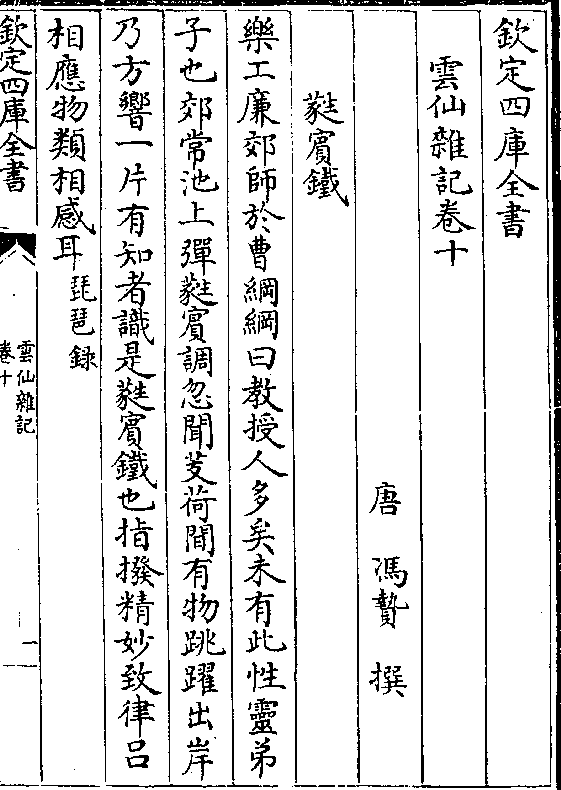 欽定四庫全書
雲仙雜記卷十
唐 馮贄 撰
蕤賓鐵
樂工廉郊師於曹綱綱曰教授人多矣未有此性靈弟
子也郊常池上彈蕤賓調忽聞芰荷間有物跳躍出岸
乃方響一片有知者識是蕤賓鐵也指撥精妙致律呂
相應物類相感耳琵琶録
欽定四庫全書
雲仙雜記
卷十
一